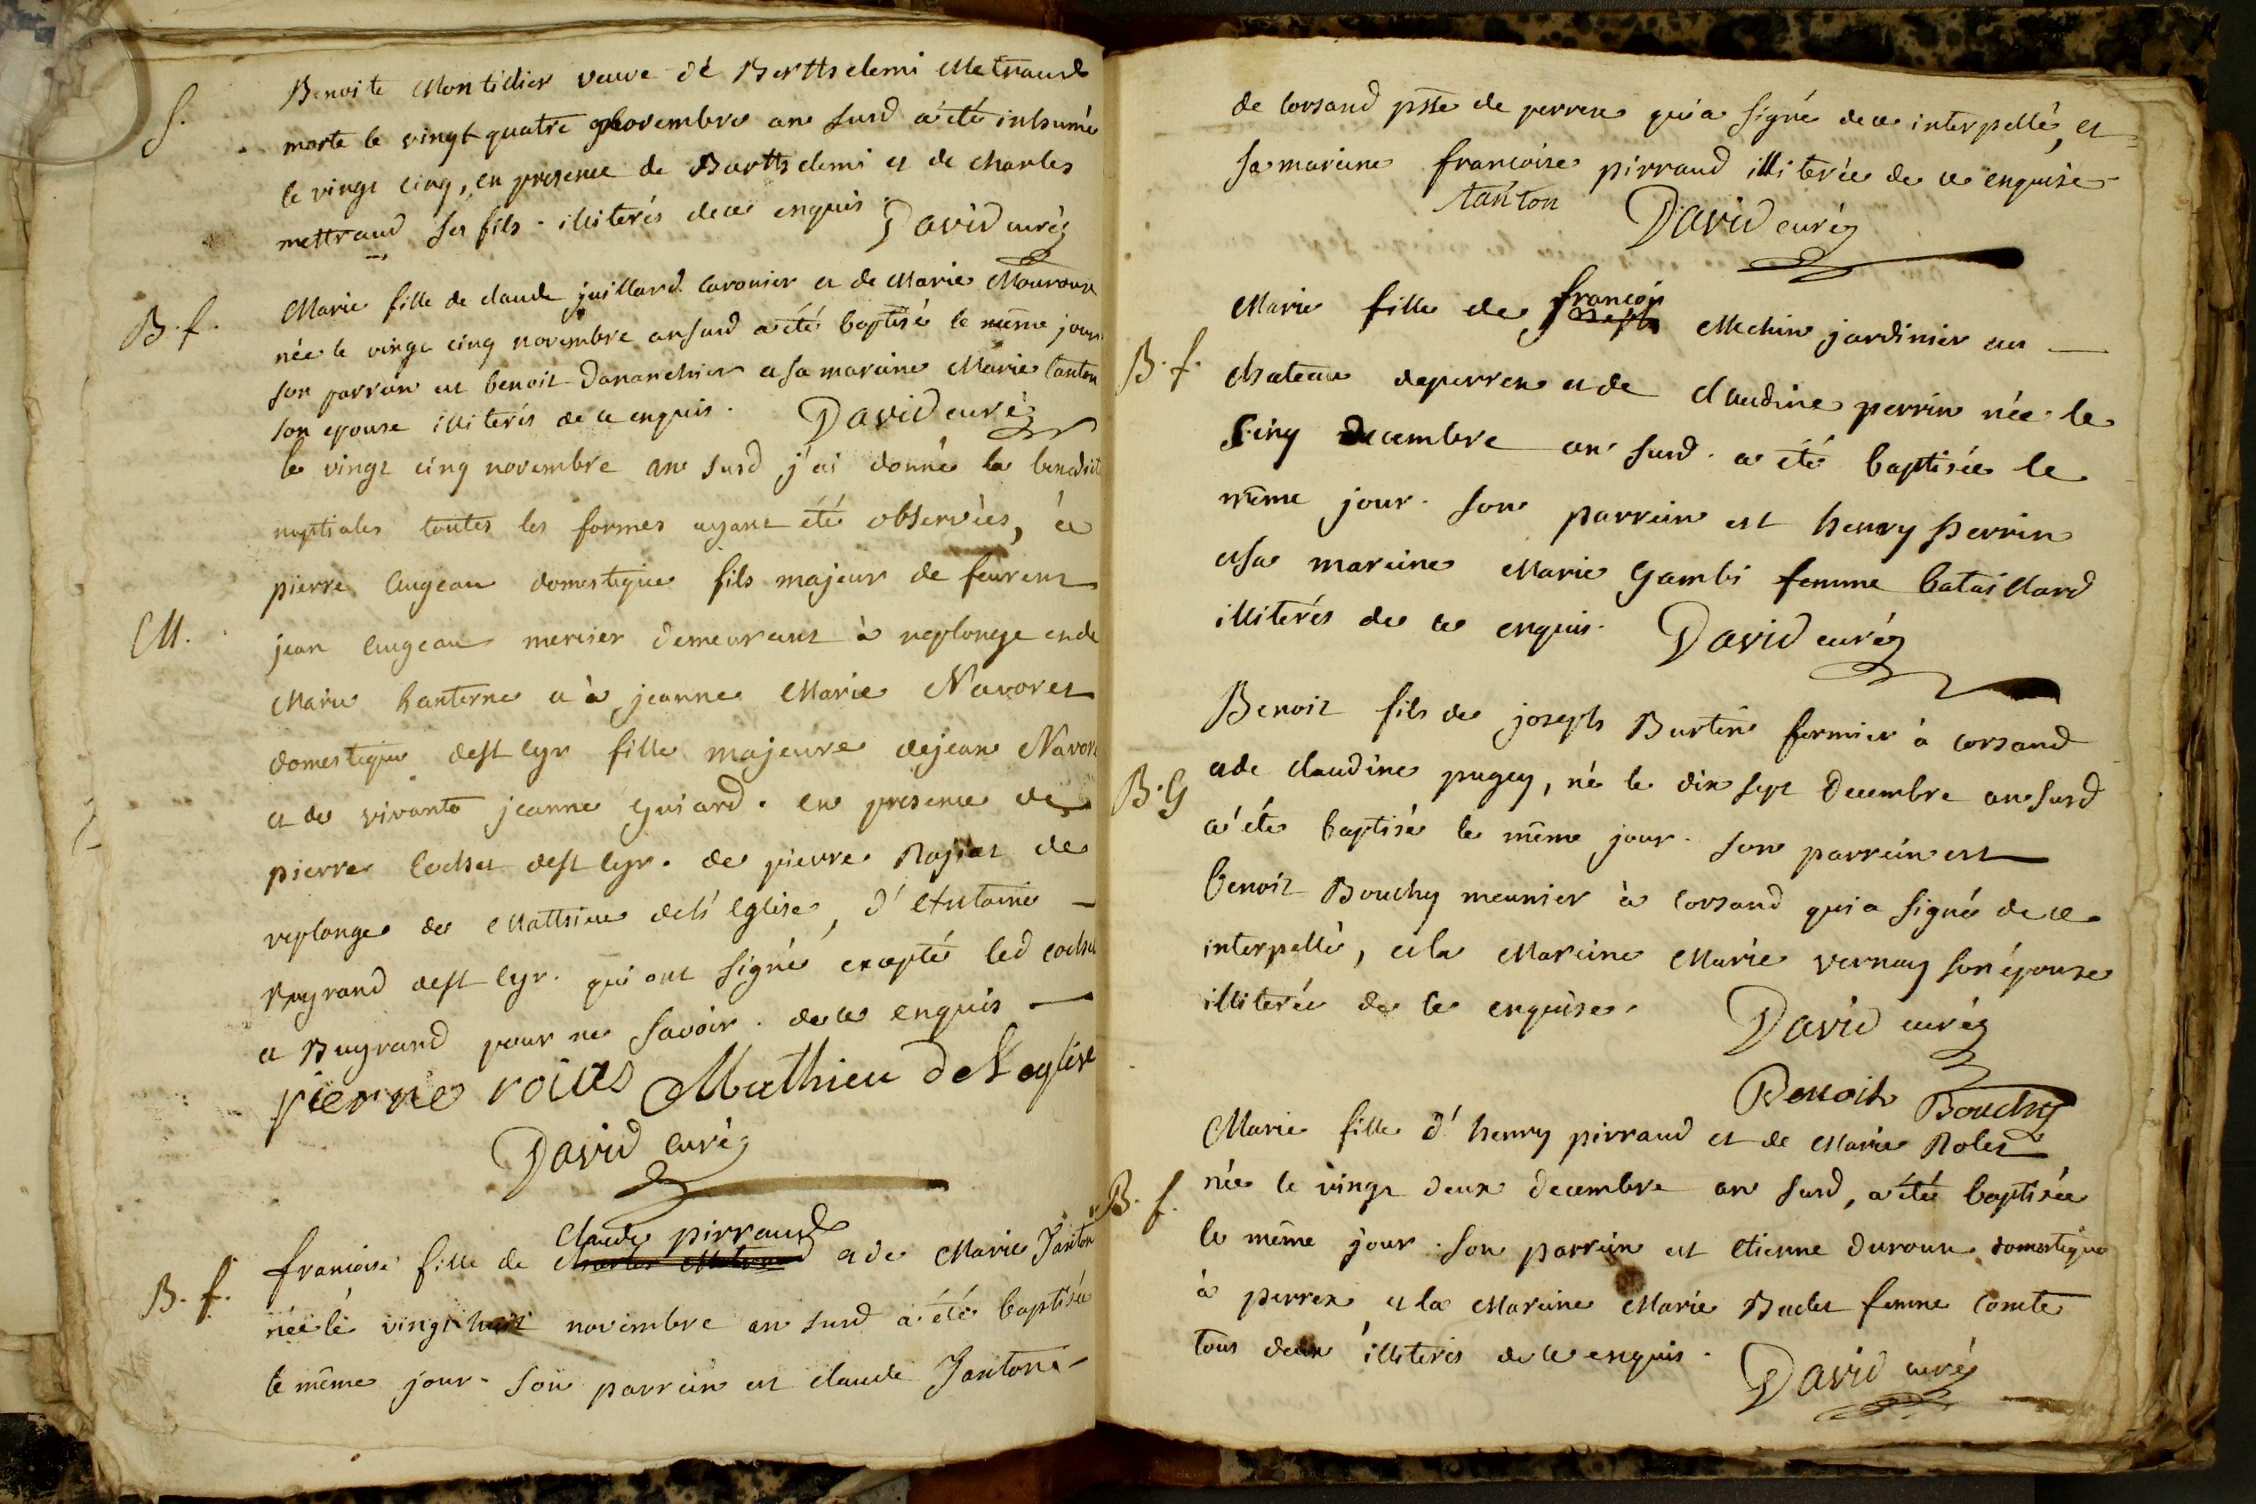 S.
Benoite Montidier veuve dé Barthelemi Metraud
morte le vingt quatre novembre an susd a été inhumé
le vingt cinq, en presence de Barthelemi et de charles
mettraud ses fils - illiterés de ce enquis.
David curé
B. f.
Marie fille de claude juillard et de Marie Mauroux
née le vingt cinq novembre an susd a été baptisé le même jour
son parrain est benoit Dananchier et sa maraine Marie tanton
son epouse illiterés de ce enquis. David curé
le vingt cinq novembre an susd j'ai donné la benedict
nuptiales toutes les formes ayant été observées, à
pierre augeau domestique fils majeur de
M.
jean augeau demeurant à replonge et de
Marie lanterne et à jeanne Marie Navoret
domestique de st cyr fille majeure de jean Navoret
et de vivante jeanne guiard. en presence de
pierre cochet de st cyr. de pierre de
replonge de Matthieu de l'Eglise, d'Antoine
de st cyr. qui ont signé excepté led cochet
et Bugrand pour ne savoir. de ce enquis
pierre Mathieu de Leglise
David curé
B. f.
francoise fille de claude pirraud et de Marie Janton
née le vingt huit novembre an susd a été baptisée
le même jour. son parrein est claude Janton
de corsand psse de perrex qui a signé de ce interpellé, et
sa mareine francoise pirraud illiterée de ce enquise
tanton David curé
B. f.
Marie fille de francois Mechin jardinier au
chateau de perrex et de claudine perrin née le
cinq decembre an susd. a été baptisée le
même jour. son parrein est henry perrin
et sa mareine Marie Gambi femme bataillard
illiterés de ce enquis. David curé
B. G
Benoit fils de joseph Burtin fermier à corsand
et de claudine pugey, né le dix sept decembre an susd
a été baptisé le même jour. son parrein est
benoit Bouchy meunier à corsand qui a signé de ce
interpellé, et la Mareine Marie vernay son épouse
illiterée de ce enquise. David curé
Benoit Bouchy
B. f.
Marie fille d'henry pirraud et de Marie Rolet
née le vingt deux decembre an susd, a été baptisée
le même jour. son parrein est etienne duroux domestique
à perrex, et la Mareine Marie Badet femme comte
tous deux illiterés de ce enquis. David curé